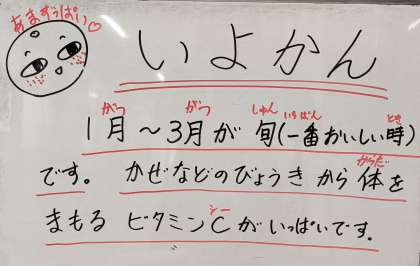 あまずっぱい♡
いよかん
がつ がつ しゅん いちばん とき
1月～3月が旬(一番おいしい時)
からだ
です。かぜなどのびょうきから体を
シー
まもるビタミンCがいっぱいです。